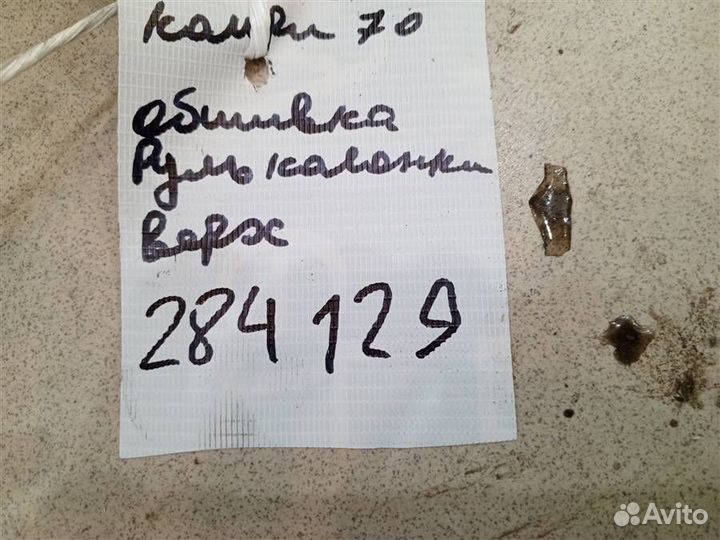 камри 70
обшивка
Руль колонки
верх
284 129
Avito